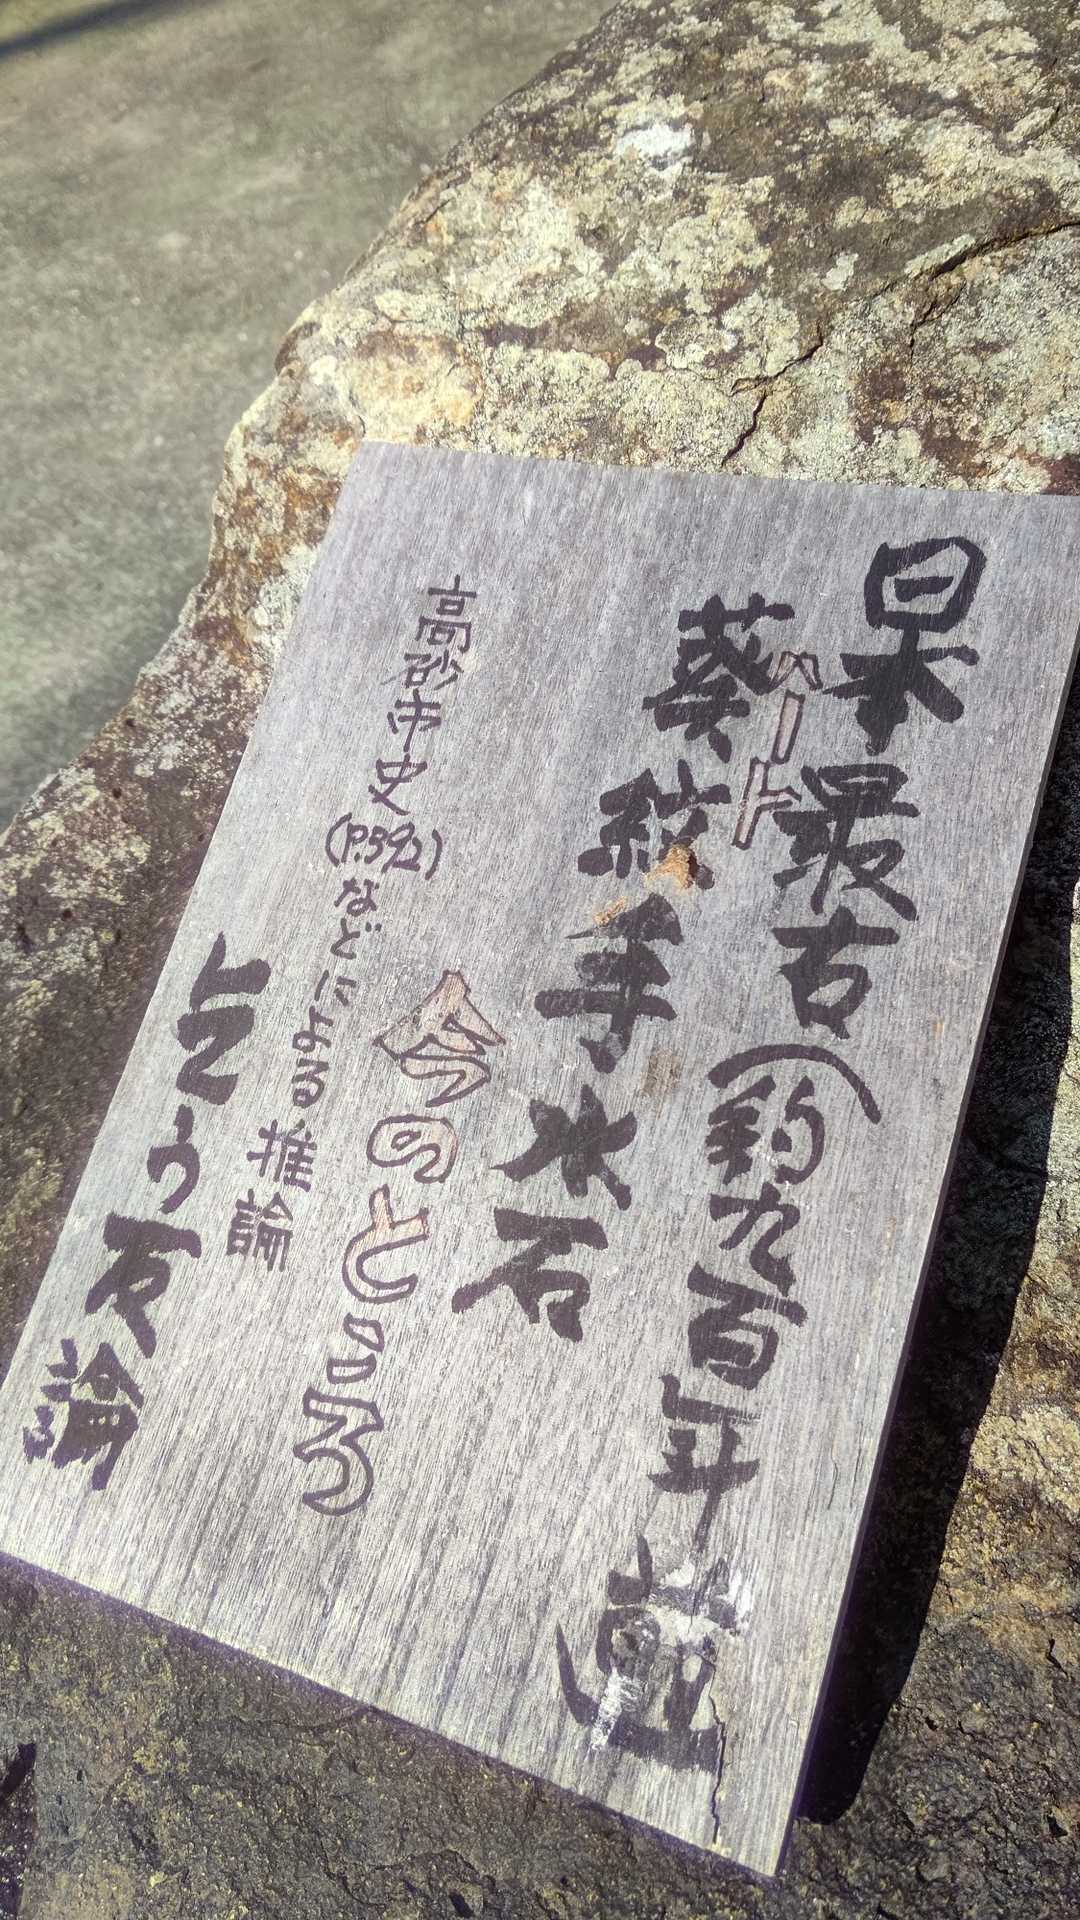 日本最古(約九百年
ハート
葵紋手水石
今のところ
高砂市史(P.592)などによる推論
論